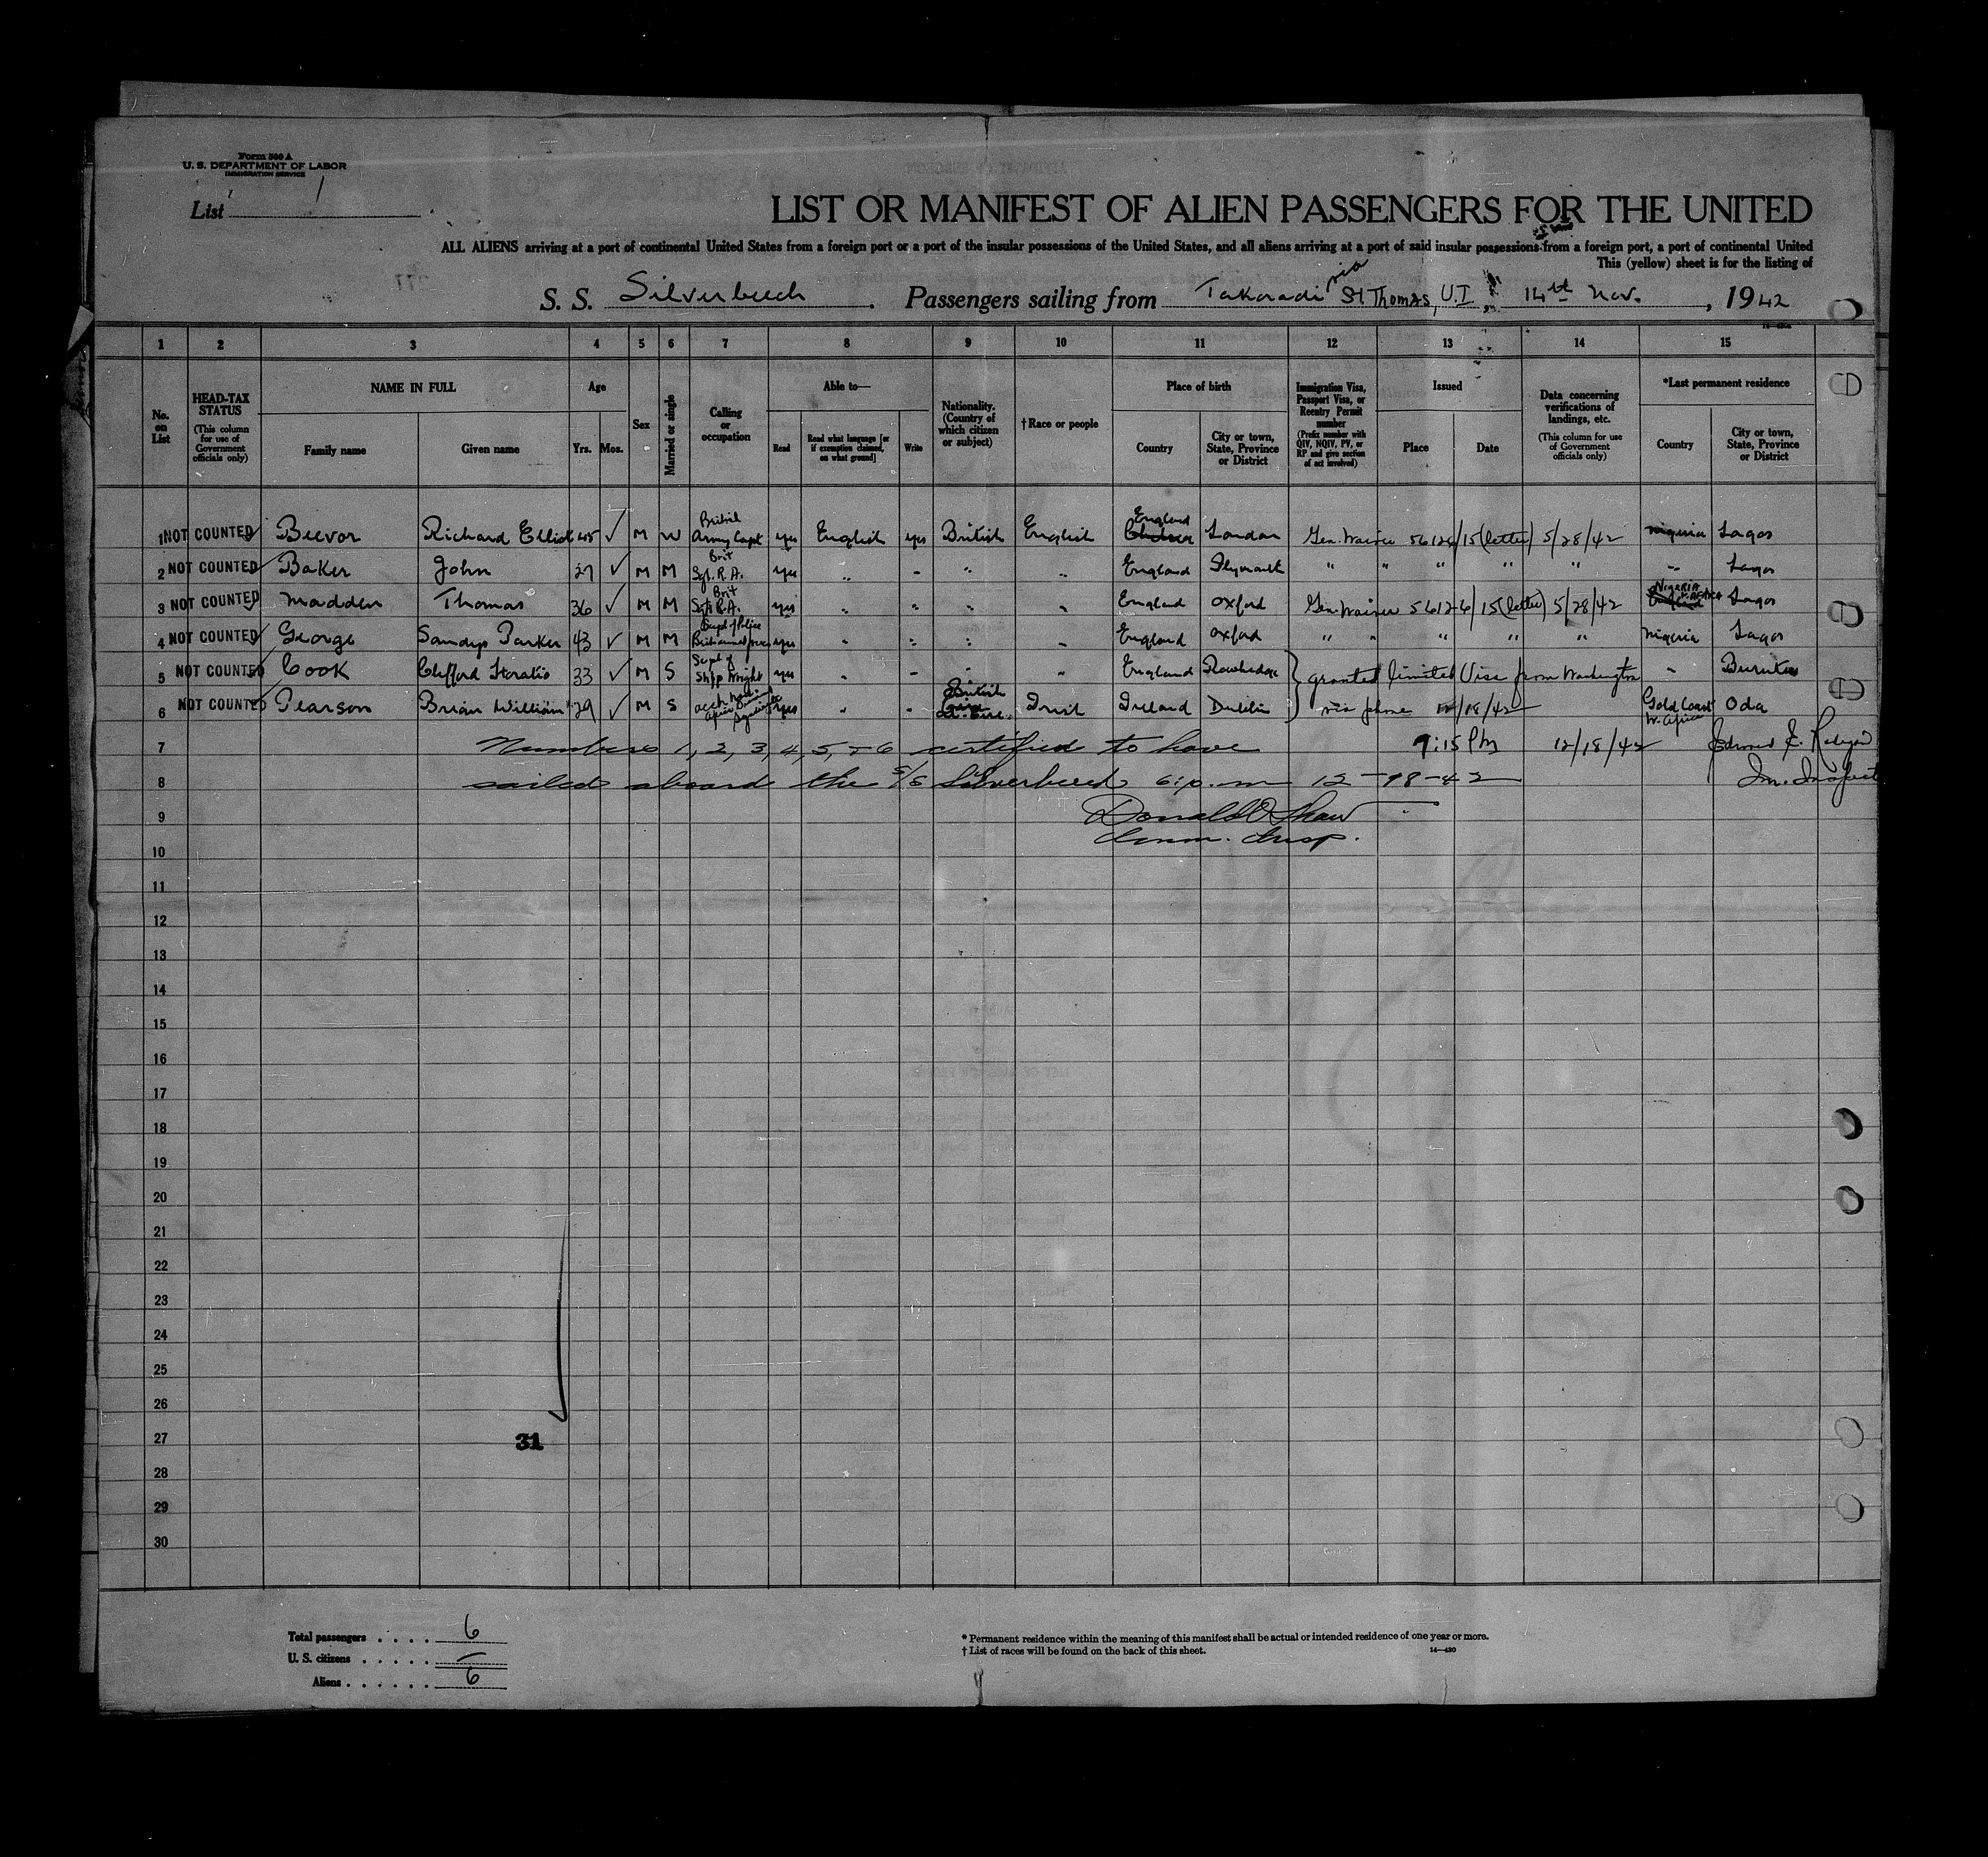 Form 500 A
U. S. DEPARTMENT OF LABOR
IMMIGRATION SERVICE
List 1
LIST OR MANIFEST OF ALIEN PASSENGERS FOR THE UNITED
ALL ALIENS arriving at a port of continental United States from a foreign port or a port of the insular possessions of the United States, and all aliens arriving at a port of said insular possessions from a foreign port, a port of continental United
This (yellow) sheet is for the listing of
S. S. Silverbeech . Passengers sailing from Takoradi via St. Thomas, V.I., 14th Nov. , 1942
1 2 3 4 5 6 7 8 9 10 11 12 13 14 15
No. on List
HEAD-TAX STATUS (This column for use of Government officials only)
NAME IN FULL Family name Given name
Age Yrs. Mos.
Sex
Married or single
Calling or occupation
Able to— Read Read what language [or if exemption claimed, on what ground] Write
Nationality. (Country of which citizen or subject)
† Race or people
Place of birth Country City or town, State, Province or District
Immigration Visa, Passport Visa, or Reentry Permit number (Prefix number with QIV, NQIV, PV, or RP and give section of act involved)
Issued Place Date
Data concerning verifications of landings, etc. (This column for use of Government officials only)
*Last permanent residence Country City or town, State, Province or District
1 NOT COUNTED Beevor Richard Elliot 45 ✓ M W British Army Capt yes English yes British English England Chelsea London Gen. Waiver 56126/15 (letter) 5/28/42 Nigeria Lagos
2 NOT COUNTED Baker John 27 ✓ M M Brit Sgt. R.A. yes " - " " England Plymouth " " " " " " Lagos
3 NOT COUNTED Madden Thomas 36 ✓ M M Brit Sgt. R.A. yes " " " " England Oxford Gen. Waiver 56126/15 (letter) 5/28/42 Nigeria W. Africa England Lagos
4 NOT COUNTED George Sandys Parker 43 ✓ M M Supt of Police yes " " " " England Oxford " " " " " Nigeria Lagos
5 NOT COUNTED Cook Clifford Horatio 33 ✓ M S Supt of Shipwright yes " " " " England Rowhedge } granted limited Visa from Washington " Burutu
6 NOT COUNTED Pearson Brian William 29 ✓ M S yes " " British Irish Ireland Dublin via phone 12/18/42 Gold Coast W. Africa Oda
7 Numbers 1, 2, 3, 4, 5, & 6 certified to have 9:15 PM 12/18/42
8 sailed aboard the S/S Silverbeech 6: p.m 12-18-42
9 Donald O Shaw
Imm. Insp.
10
11
12
13
14
15
16
17
18
19
20
21
22
23
24
25
26
27 31
28
29
30
Total passengers . . . . 6
U. S. citizens . . . . . —
Aliens . . . . . . 6
* Permanent residence within the meaning of this manifest shall be actual or intended residence of one year or more.
† List of races will be found on the back of this sheet.
14—430